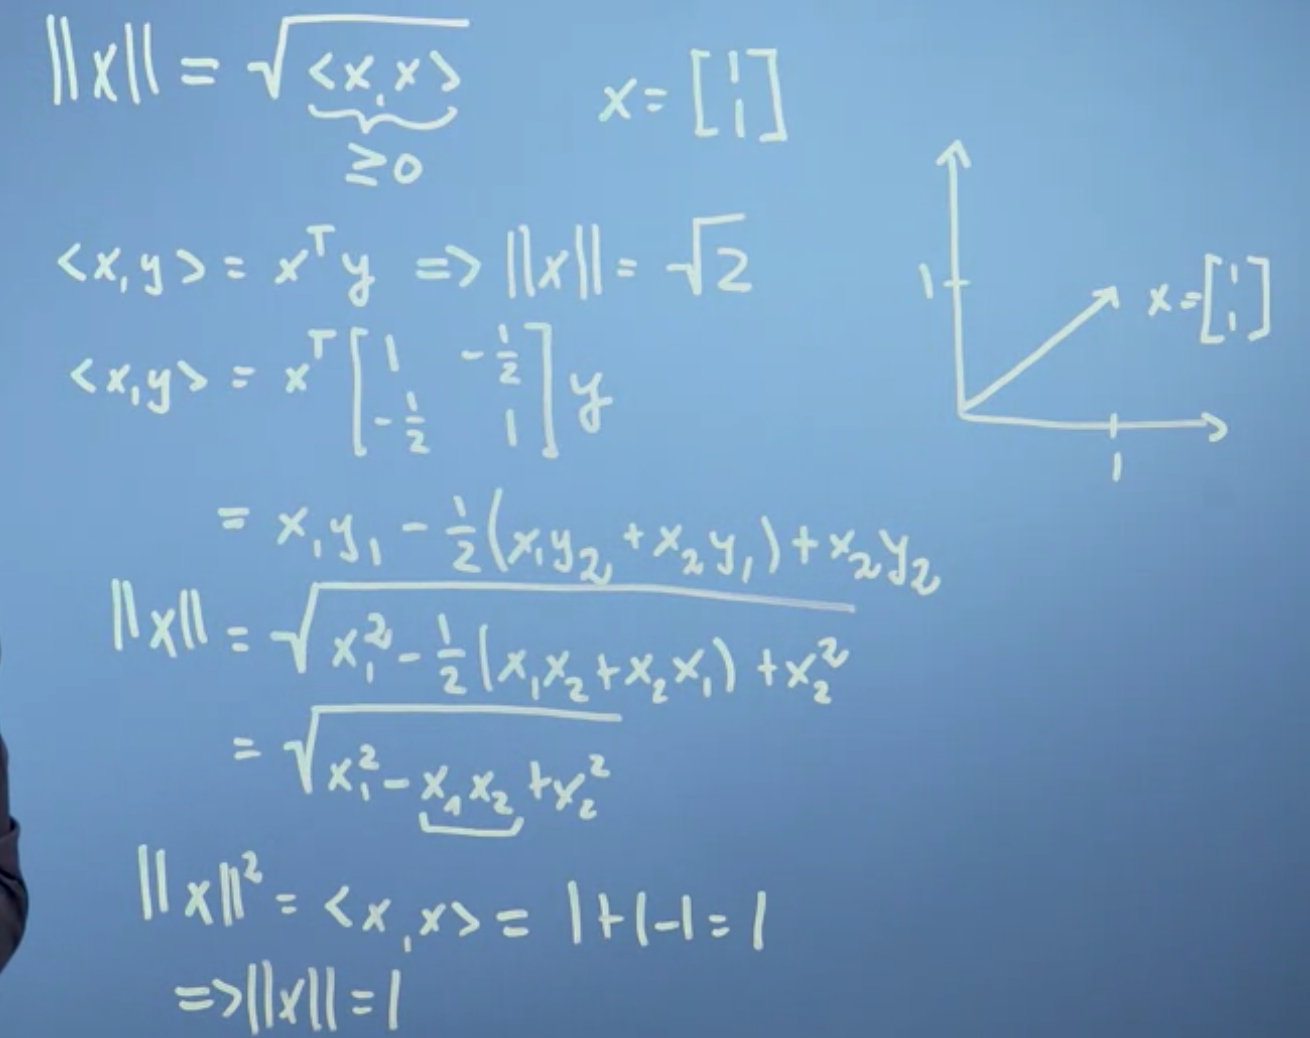 ||x|| = √<x,x> x = [1 1]
≥0
<x,y> = xᵀy => ||x|| = √2
1 x = [1 1]
<x,y> = xᵀ [1 -1/2 -1/2 1] y
1
= x₁y₁ - 1/2 (x₁y₂ + x₂y₁) + x₂y₂
||x|| = √x₁² - 1/2 (x₁x₂ + x₂x₁) + x₂²
= √x₁² - x₁x₂ + x₂²
||x||² = <x,x> = 1+1-1=1
=> ||x|| = 1